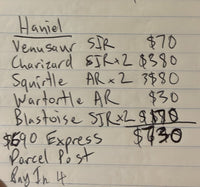 Haniel
Venusaur SIR $70
Charizard SIR x2 $380
Squirtle AR x2 $80
Wartortle AR $30
Blastoise SIR x2 $170
$730
$690 Express
Parcel Post
Pay In 4